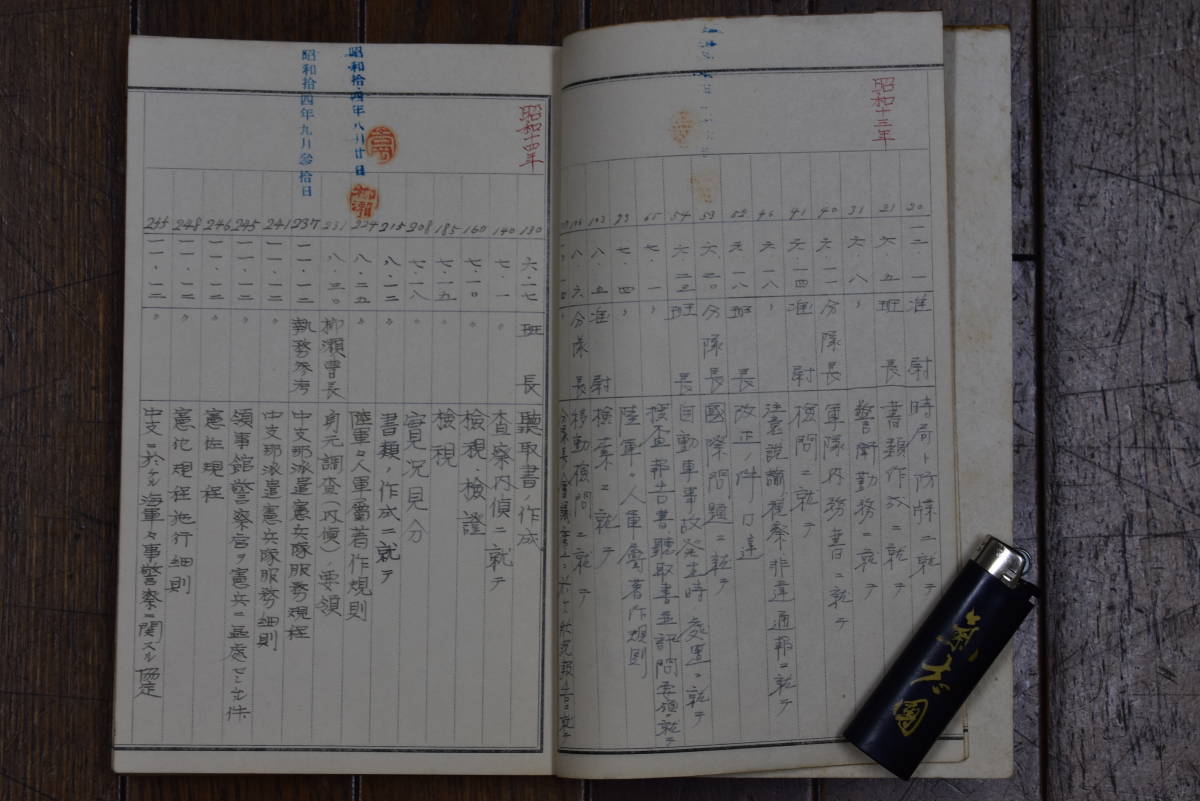 昭和十三年
20 一二、一 准尉 時局ト防諜ニ就テ
21 六、五 班長 書類作成ニ就テ
31 六、八 〃 警衛勤務ニ就テ
40 六、一一 分隊長 軍隊内務書ニ就テ
41 六、一四 准尉 検問ニ就テ
46 六、一八 〃 注意説諭視察非違通報ニ就テ
52 六、一八 班長 改正ノ件口達
53 六、二〇 分隊長 国際問題ニ就テ
54 六、二三 班長 自動車事故発生時ノ処置ニ就テ
65 七、一 〃 捜査報告書聴取書並訊問要領ニ就テ
93 七、四 〃 陸軍々人軍属著作規則
103 八、五 准尉 検索ニ就テ
106 八、六 分隊長 移動検問ニ就テ
昭和十四年
昭和拾四年八月廿日
昭和拾四年九月參拾日
柳瀬
130 六、一七 班長 聴取書ノ作成
140 七、一 〃 査察内偵ニ就テ
160 七、一〇 〃 検視、検證
185 七、一五 〃 検視
208 七、一八 〃 實況見分
215 八、一二 〃 書類ノ作成ニ就テ
224 八、二五 〃 陸軍々人軍属著作規則
231 八、三〇 柳瀬曹長 身元調査(内偵)ノ要領
237 一一、一二 執務参考 中支那派遣憲兵隊服務規程
241 一一、一二 〃 中支那派遣憲兵隊服務細則
245 一一、一二 〃 領事館警察官ヲ憲兵ニ區處セシムル件
246 一一、一二 〃 憲佐規程
248 一一、一二 〃 憲佐規程施行細則
255 一一、一二 〃 中支ニ於ケル海軍々事警察ニ関スル協定